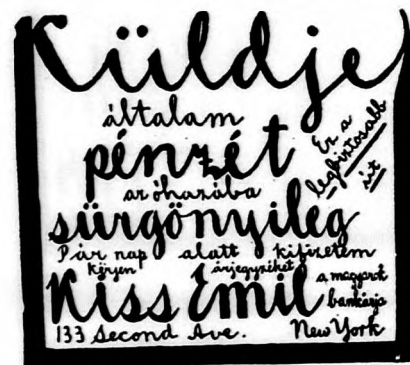 Küldje
általam
pénzét
az óhazába
Ez a
legbiztosabb
út
sürgönyileg
Pár nap alatt kifizetem
kérjen árjegyzéket
Kiss Emil
a magyarok
bankárja
133 Second Ave. New York